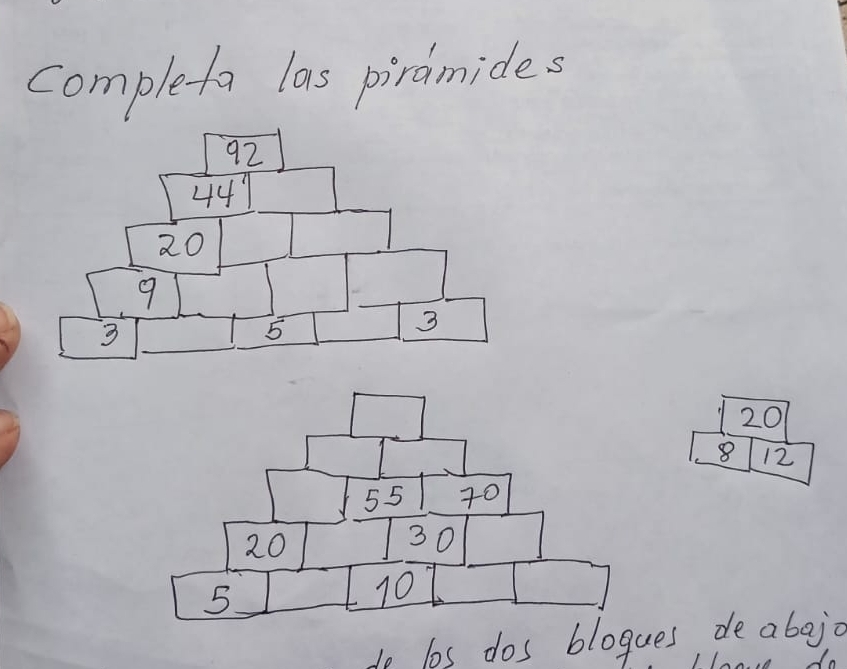 Completa las pirámides
92
44
20
9
3 5 3
20
8 12
55 70
20 30
5 10
de los dos bloques de abajo
bloque de